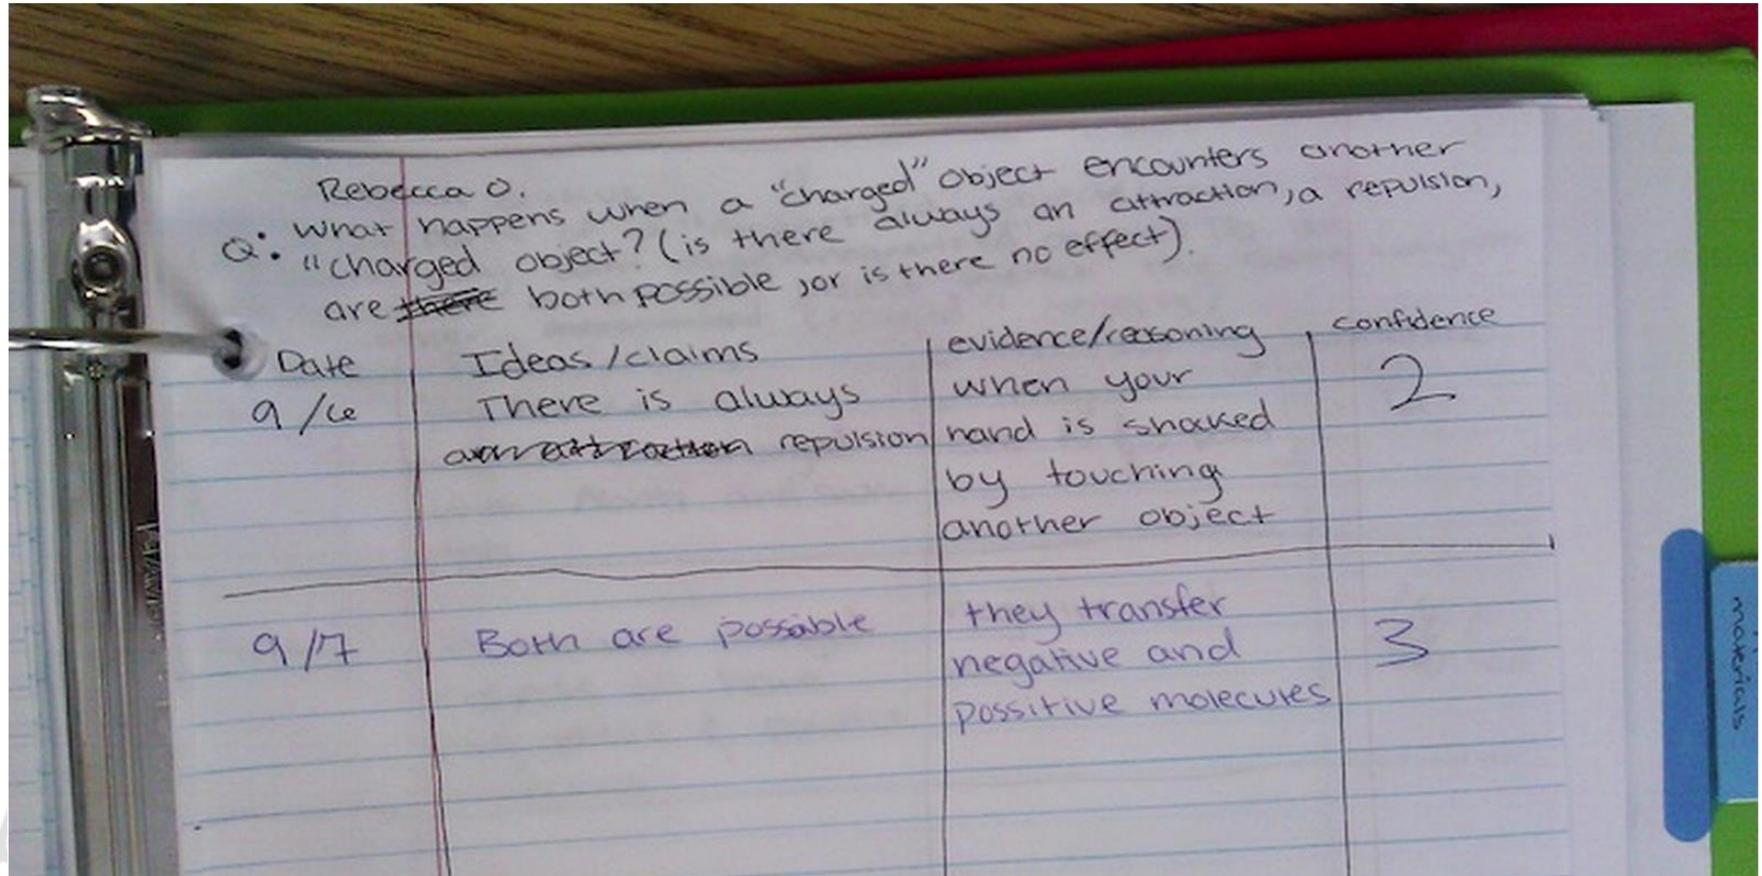 Rebecca O.
Q: What happens when a "charged" object encounters another
"charged object? (is there always an attraction, a repulsion,
are there both possible, or is there no effect).
Date Ideas/claims evidence/reasoning confidence
9/6 There is always when your 2
an attraction repulsion hand is shocked
by touching
another object
9/7 Both are possible they transfer 3
negative and
possitive molecules
materials